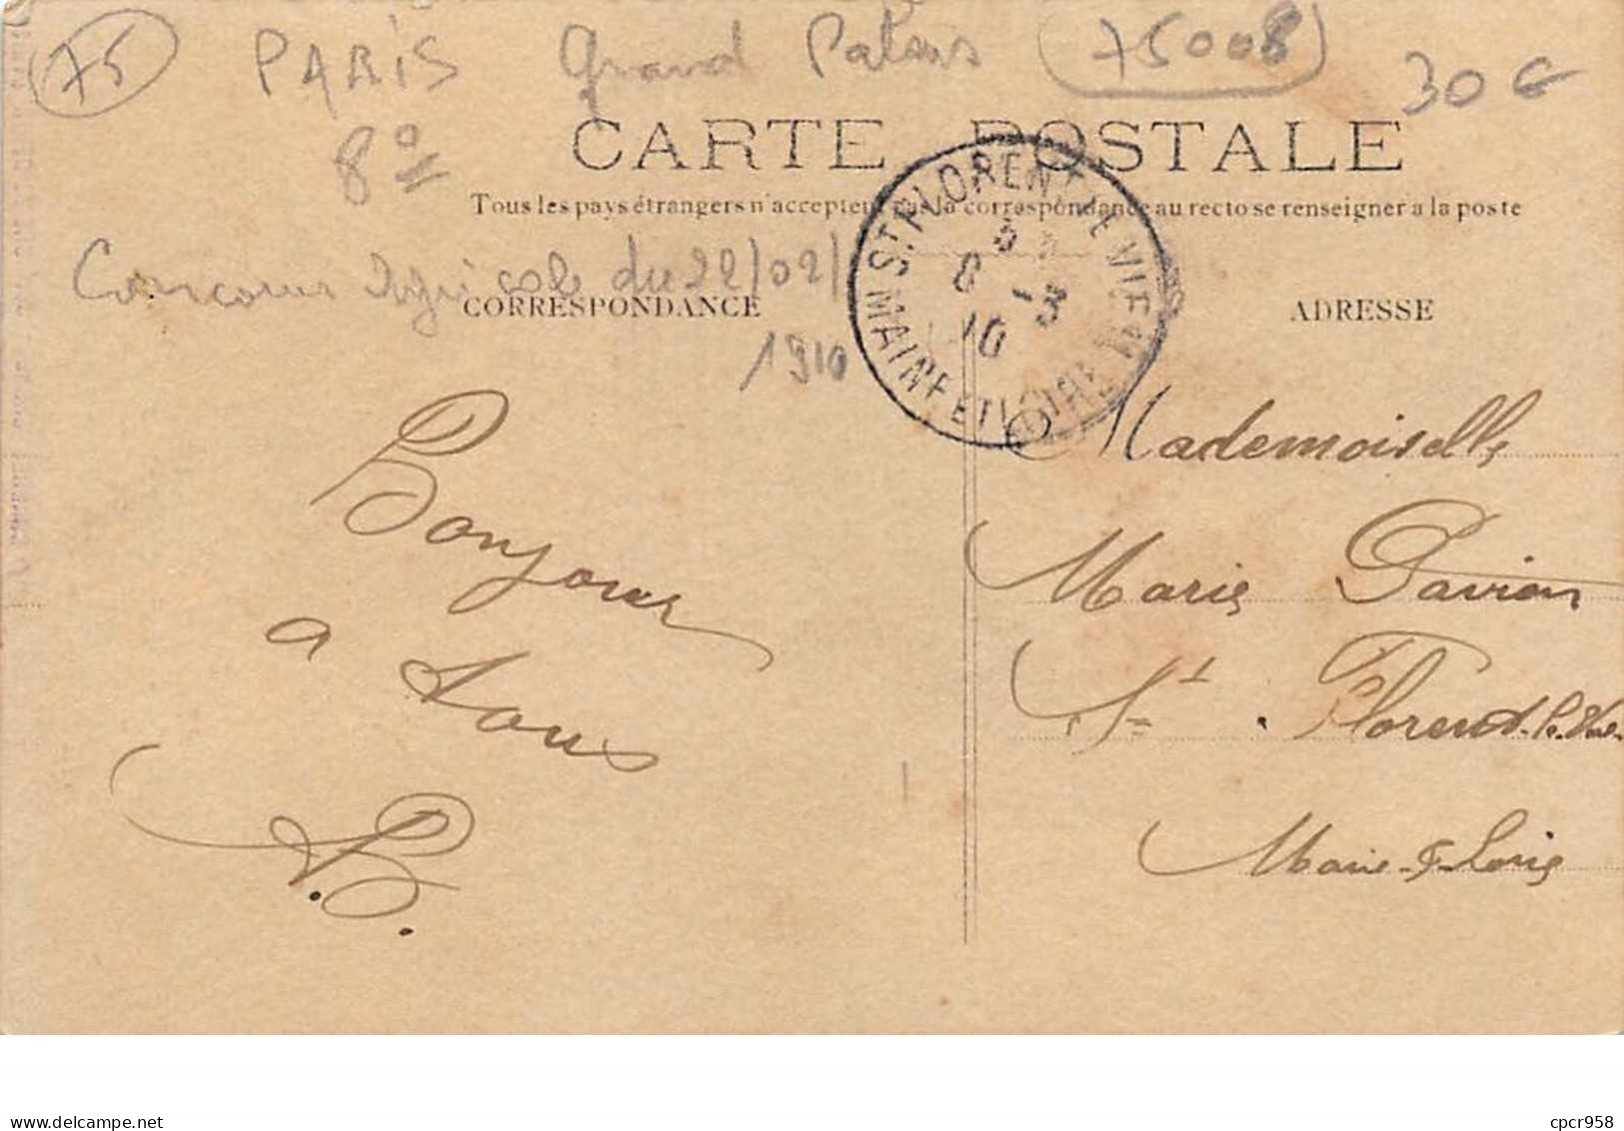 75 PARIS Grand Palais (75008) 30 €
8e
CARTE POSTALE
Tous les pays étrangers n'acceptent pas la correspondance au recto se renseigner a la poste
Concours Agricole du 22/02/
1910
CORRESPONDANCE
ADRESSE
ST FLORENT LE VIEIL
8 -3
10
MAINE ET LOIRE
Bonjour
a tous
B.
Mademoiselle
Marie Davian
St. Florent-le-Vieil
Maine-&-Loire
www.delcampe.net
cpcr958